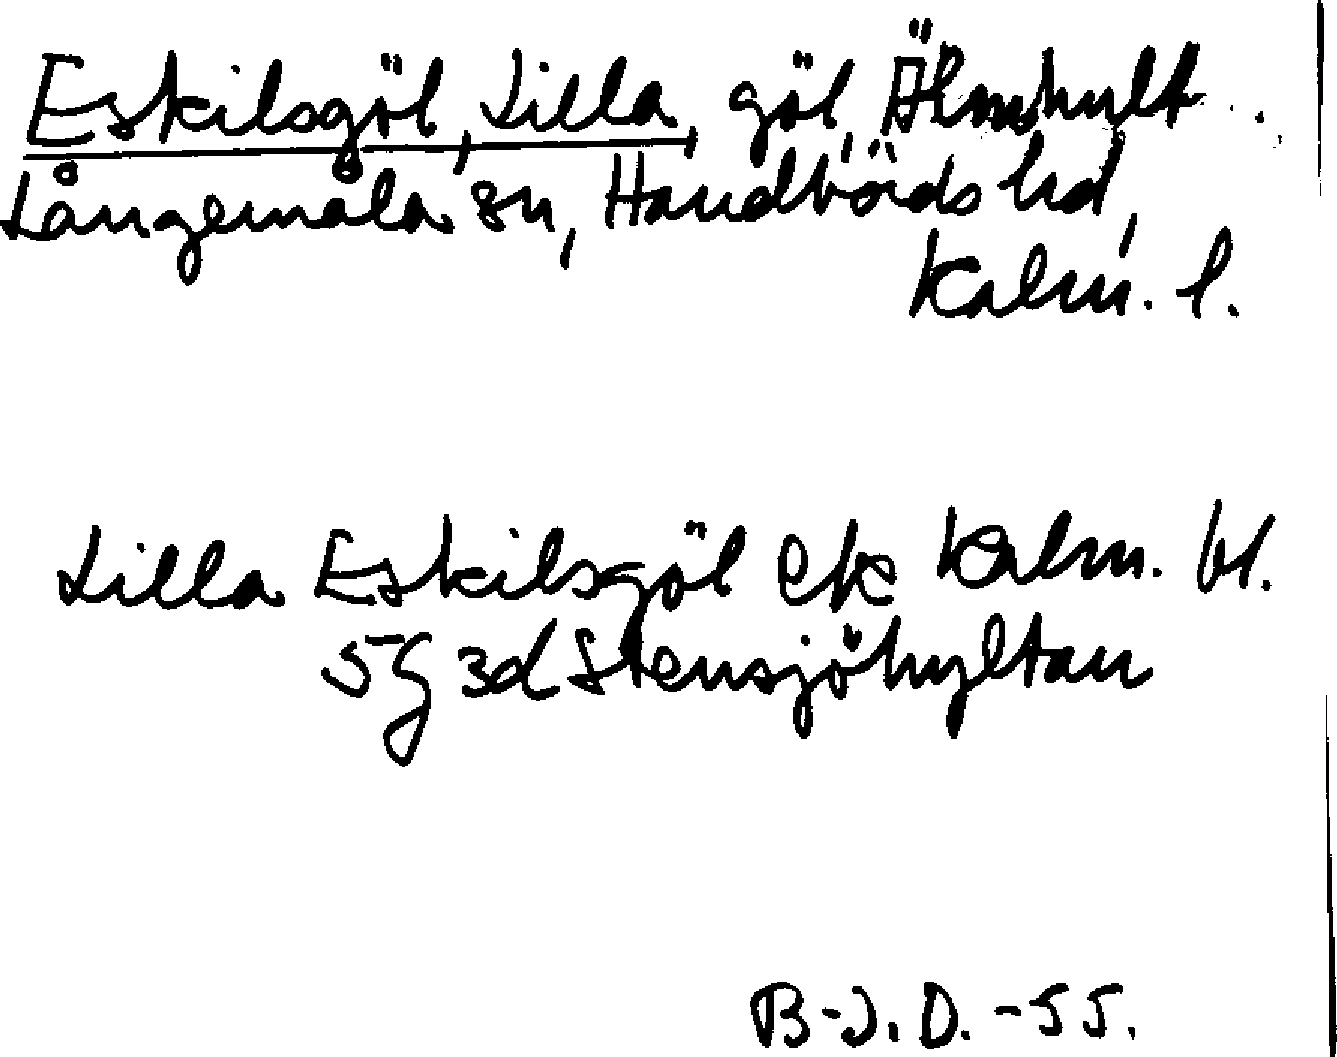 Eskilsgöl, Lilla, göl, Älmhult
Långemåla sn, Handbörds hd,
Kalm. l.
Lilla Eskilsgöl ek Kalm. bl.
5g 3d Stensjöhyltan
B-J. D. -55.